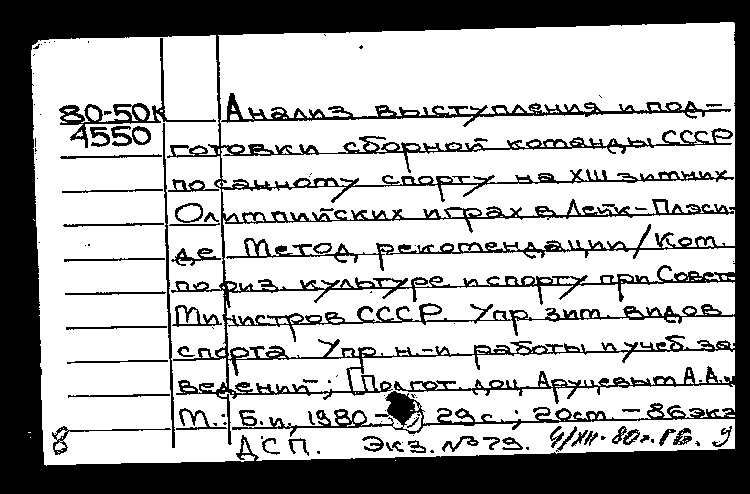 80-50к Анализ выступления и под=
4550 готовки сборной команды СССР
по санному спорту на XIII зимних
Олимпийских играх в Лейк-Плэси=
де. Метод. рекомендации / Ком.
по физ. культуре и спорту при Совете
Министров СССР. Упр. зим. видов
спорта. Упр. н.-и. работы и учеб. за=
ведений; [Подгот. доц. Аруцевым А.А.и
М.: Б.и., 1980 - 29 с.; 20 см. - 86 экз
8 ДСП. Экз. № 79. 4/XII-80г. ГБ. 9